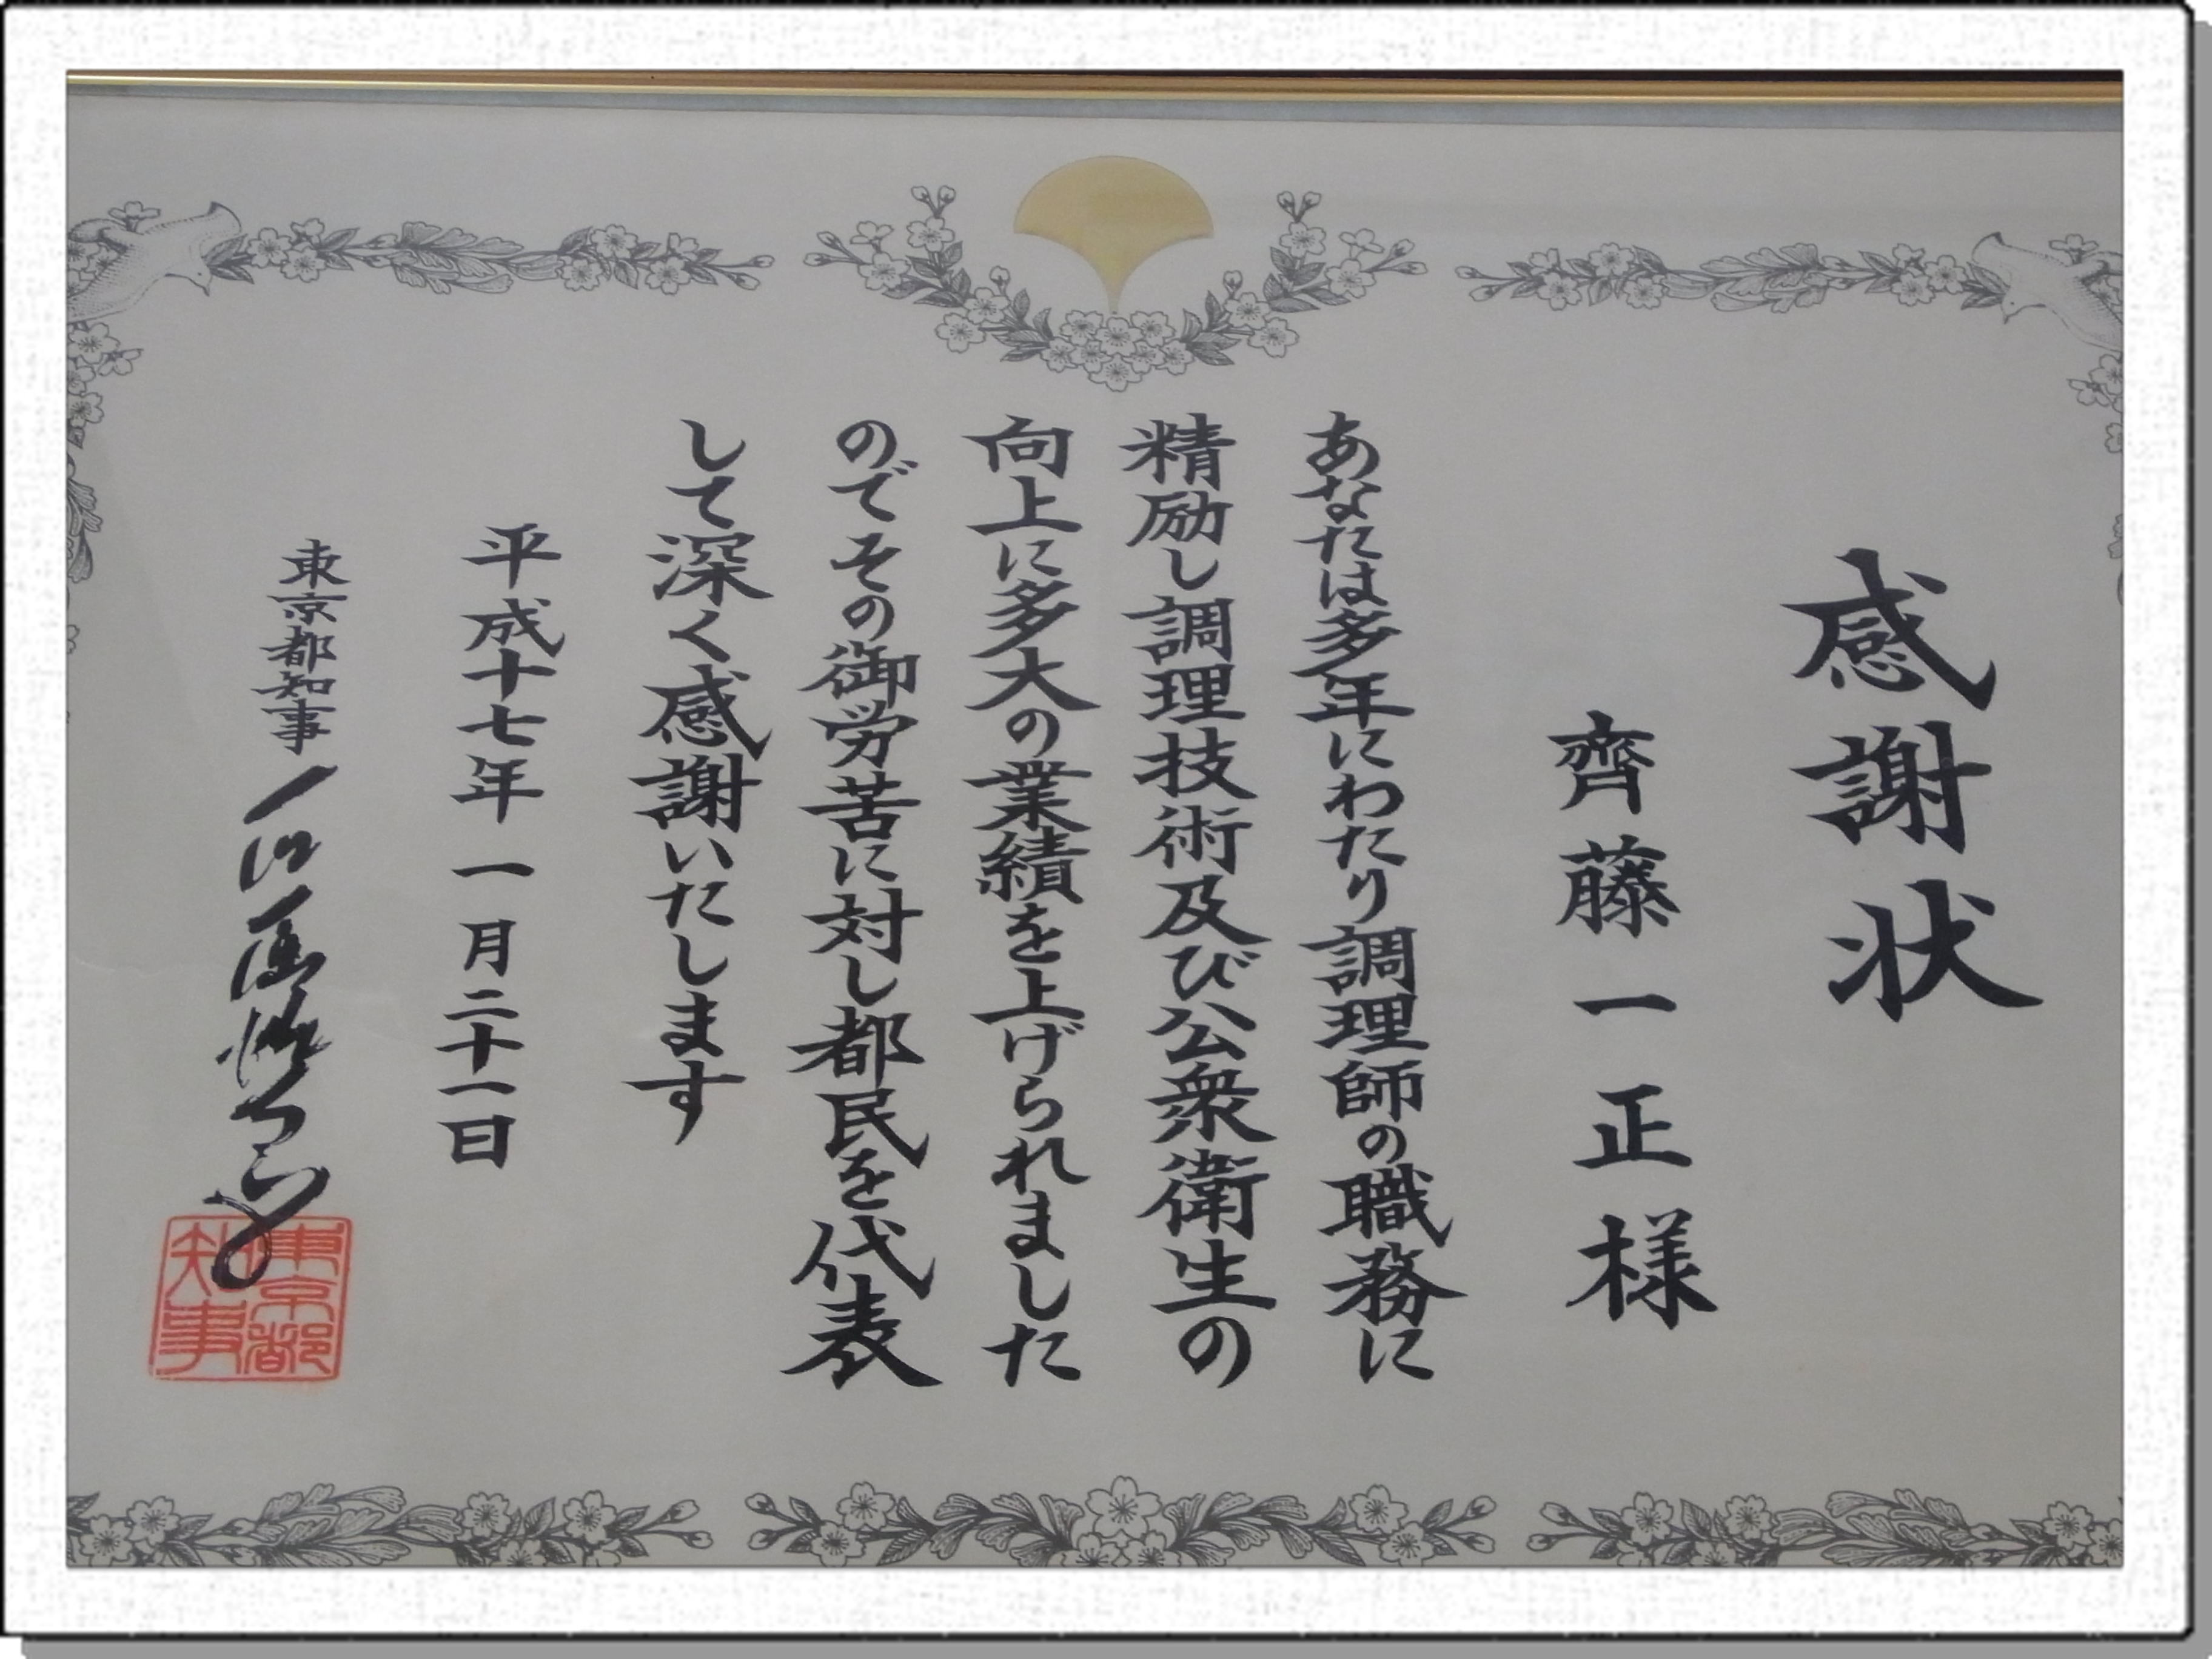 感謝状
齊藤一正様
あなたは多年にわたり調理師の職務に
精励し調理技術及び公衆衛生の
向上に多大の業績を上げられました
のでその御労苦に対し都民を代表
して深く感謝いたします
平成十七年一月二十一日
東京都知事 石原慎太郎
東京都
知事